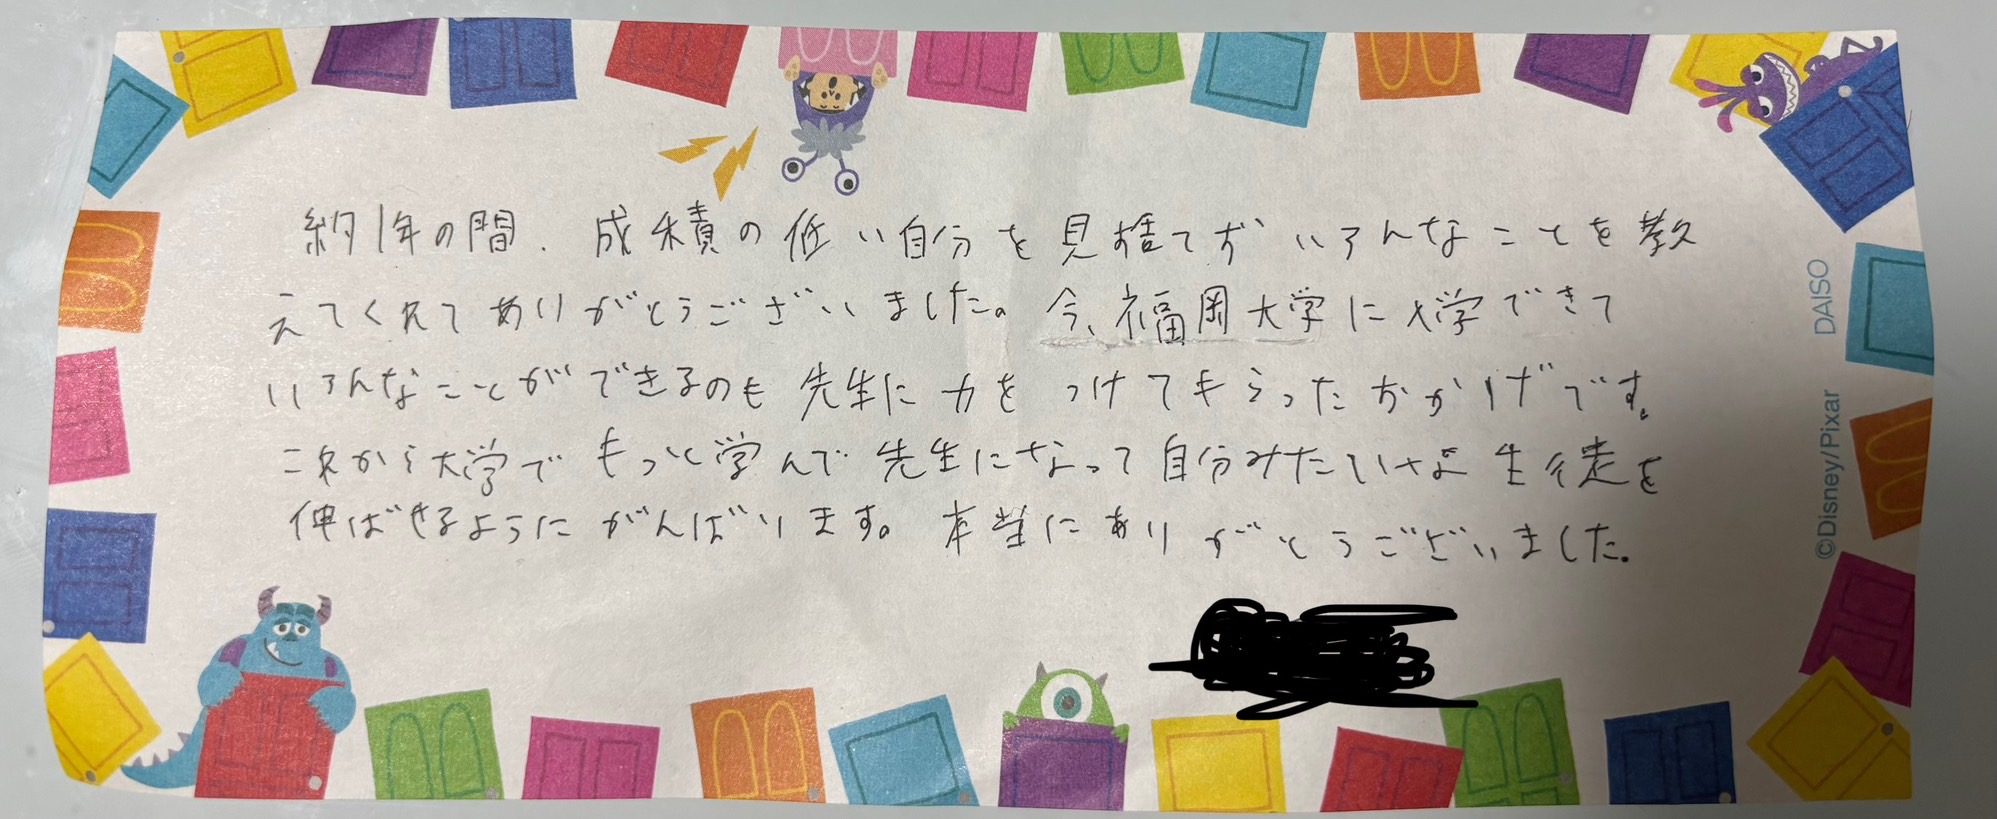 約1年の間、成積の低い自分を見捨てずいろんなことを教
えてくれてありがとうございました。今、福岡大学に入学できて
いろんなことができるのも先生に力をつけてもらったおかげです。
これから大学でもっと学んで先生になって自分みたいな生徒を
伸ばせるようにがんばります。本当にありがとうございました。
©Disney/Pixar DAISO